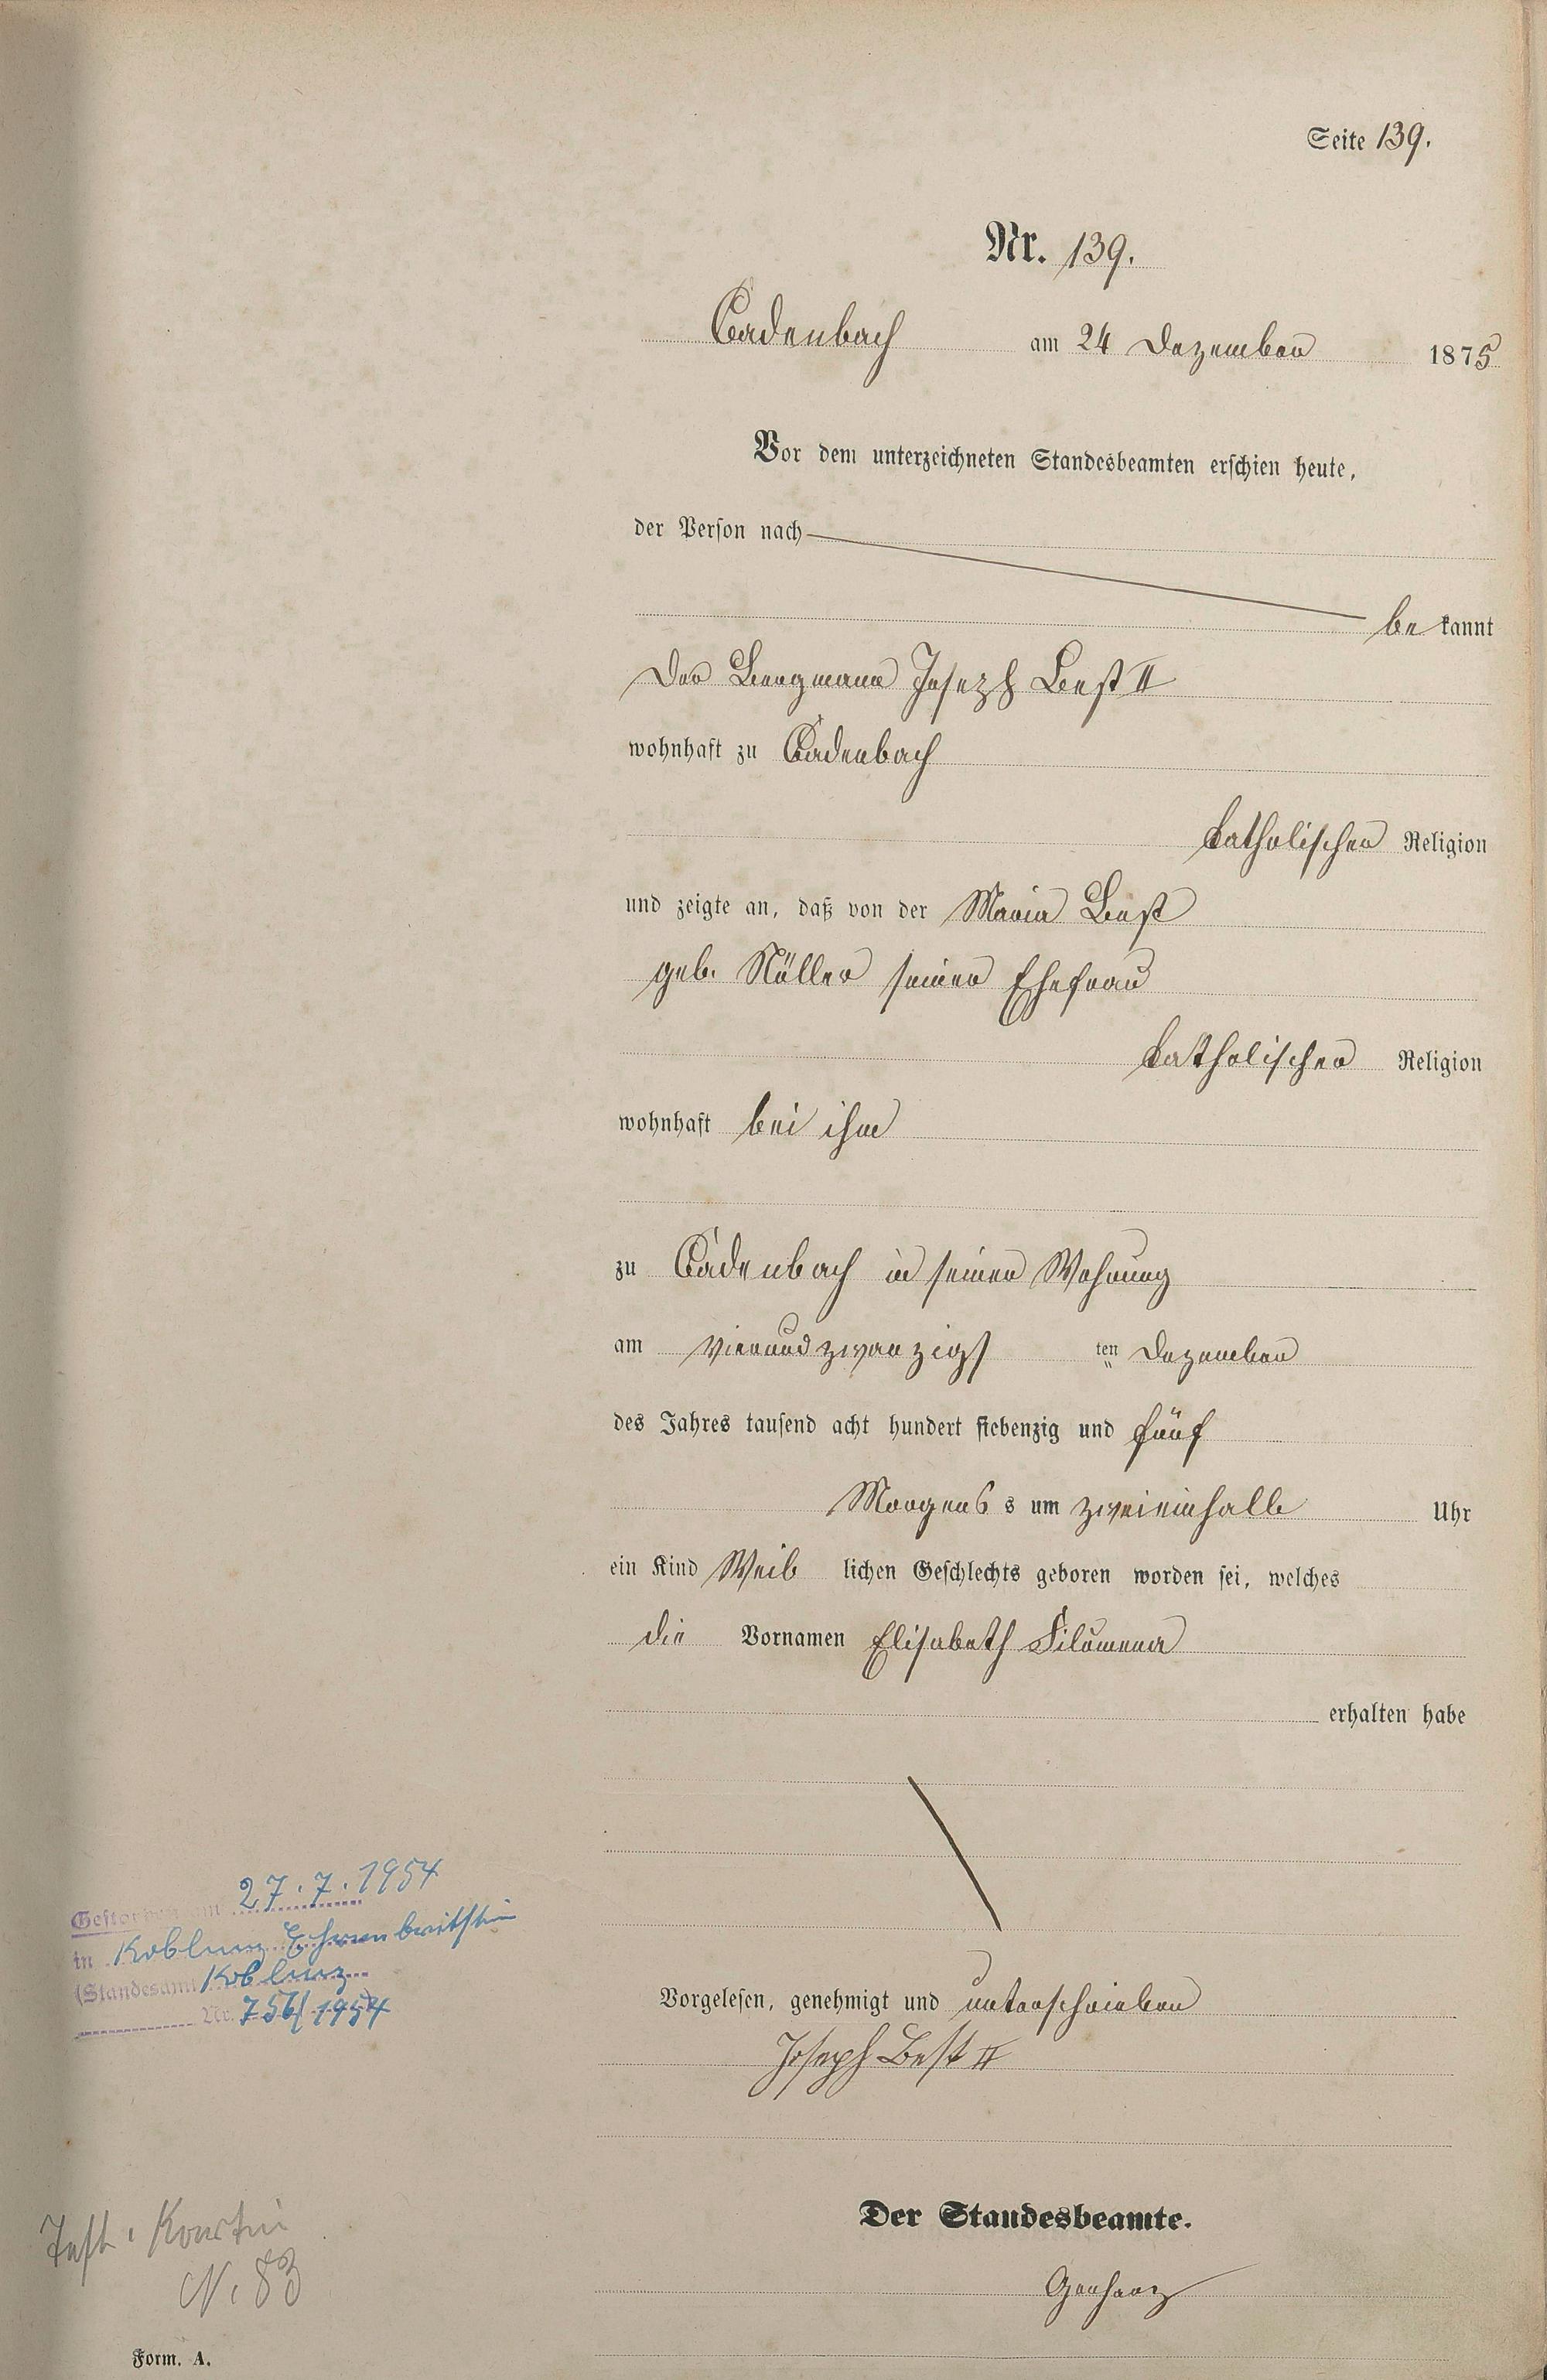 Seite 139.
Nr. 139.
Cadenbach am 24 Dezember 1875
Vor dem unterzeichneten Standesbeamten erschien heute,
der Person nach
be kannt
Der Bergmann Joseph Best II
wohnhaft zu Cadenbach
katholischer Religion
und zeigte an, daß von der Maria Best
geb. Nöller seiner Ehefrau
katholischer Religion
wohnhaft bei ihm
zu Cadenbach in seiner Wohnung
am vierundzwanzigs ten Dezember
des Jahres tausend acht hundert siebenzig und fünf
Morgens s um zweieinhalb Uhr
ein Kind Weib lichen Geschlechts geboren worden sei, welches
die Vornamen Elisabeth Filumena
erhalten habe
Gestorben am 27.7.1954
in Koblenz Ehrenbreitstein
(Standesamt Koblenz
Nr. 756/1954
Vorgelesen, genehmigt und unterschrieben
Joseph Best II
Der Standesbeamte.
N. 83
Form. A.